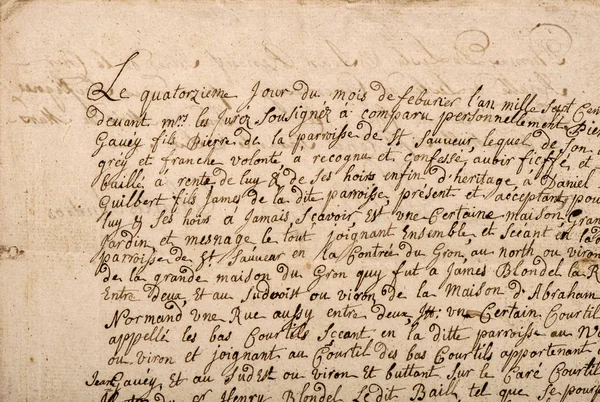 Le quatorzieme Jour du mois de feburier l'an mille sept Cen
devant m.rs les Jurez Sousignéz à comparu personnellement Pie
Gavéy fils Pierre de la parroisse de St Sauveur lequel de son
grey et franche volonté a recognu et confessé aubir fieffé et
baillé à rente de luy & de ses hoirs enfin d'heritage à Daniel
Guilbert fils James de la dite parroisse present et acceptant pou
luy & ses hoirs a Jamais, Scavoir, Est une Certaine maison Gran
Jardin et mesnage le tout joignant Ensemble, et Sceant en lad
parroisse de St Sauveur en la Contrée du Gron, au north ou viron
de la grande maison du Gron quy fut a James Blondel la R
Entre Deux, Et au Sudevoist ou viron de la Maison d'Abraham
Normand une Rue aussy entre deux, It: un Certain Courtil
appellé les bas Courtils Sceant en la ditte parroisse au N
ou viron et joignant au Courtil des bas Courtils appartenant
Jean Gavéy, Et au Sudest ou viron et buttant sur le Caré Courtil
Henry Blondel Ledit Baill tel que se pourp